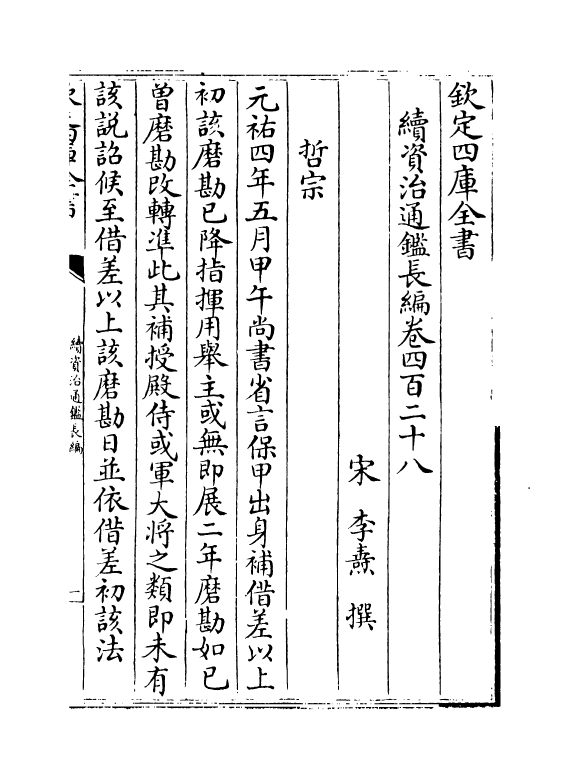 欽定四庫全書
續資治通鑑長編卷四百二十八
宋 李燾 撰
哲宗
元祐四年五月甲午尚書省言保甲出身補借差以上
初該磨勘已降指揮用舉主或無即展二年磨勘如已
曽磨勘改轉準此其補授殿侍或軍大将之類即未有
該説詔候至借差以上該磨勘日並依借差初該法
續資治通鑑長編
一